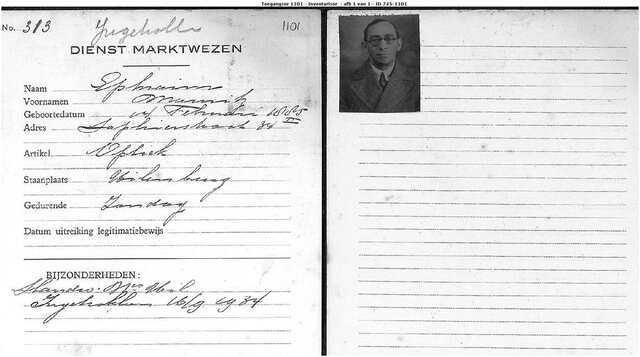 Toegangsnr 1101 - Inventarisnr - afb 1 van 1 - ID 745-1101
No. 313 Ingetrokken 1101
DIENST MARKTWEZEN
Naam Ephraim
Voornamen Maurits
Geboortedatum Februari 1885
Adres Saphierstraat 84
Artikel Optiek
Staanplaats Uilenburg
Gedurende Zondag
Datum uitreiking legitimatiebewijs
BIJZONDERHEDEN:
Uil
Ingetrokken 16/9 1934